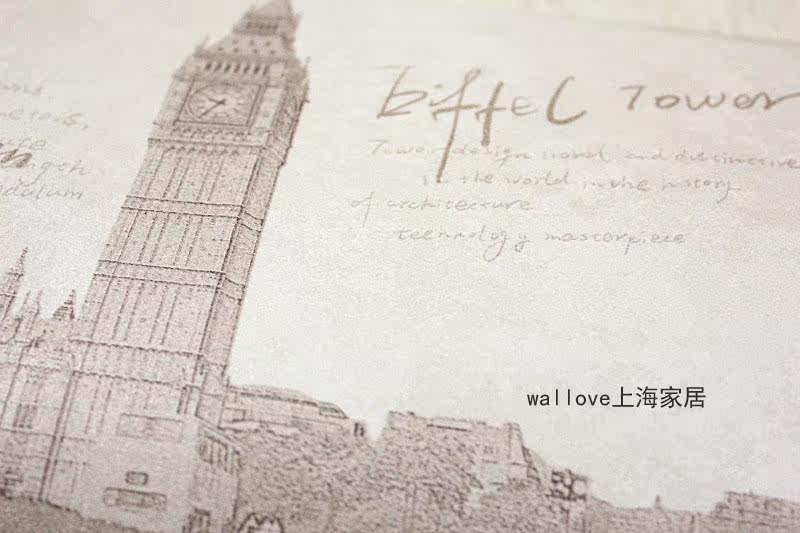 Eiffel Tower
Tower design novel and distinctive
in the world in the history
of architecture
technology masterpiece
wallove上海家居